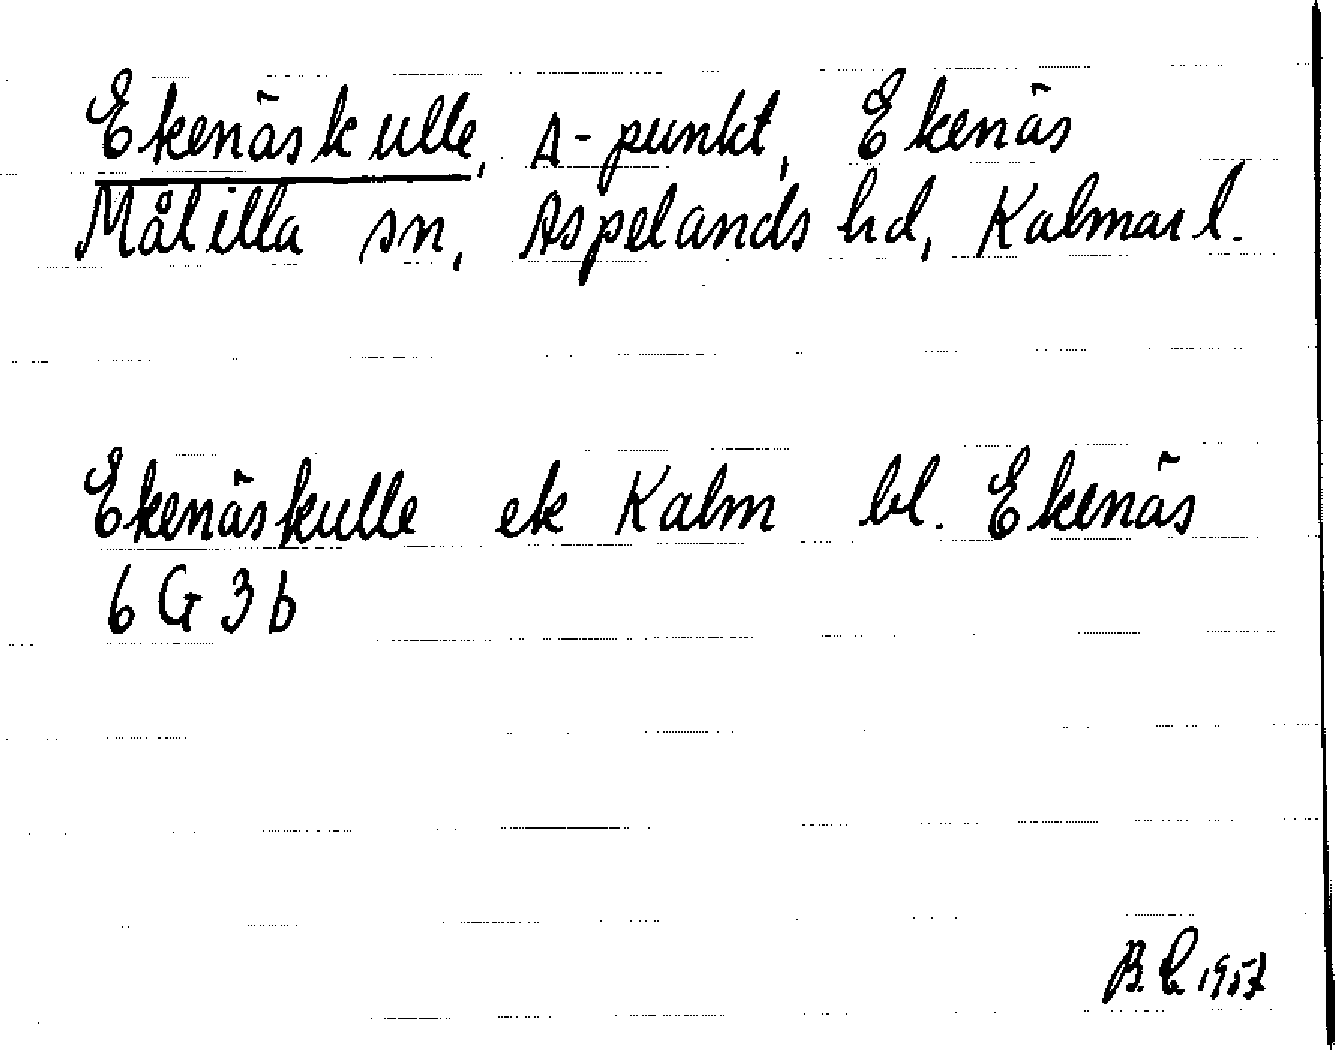 Ekenäskulle, A-punkt, Ekenäs
Målilla sn, Aspelands hd, Kalmar l.
Ekenäskulle ek Kalm bl. Ekenäs
6G3b
1957